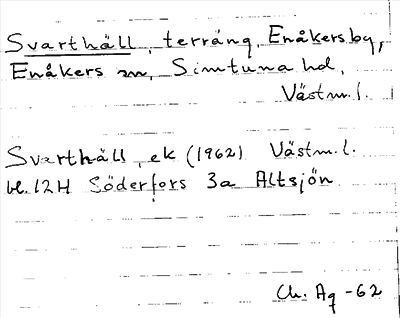 Svarthäll, terräng, Enåkersby,
Enåkers sn, Simtuna hd,
Västm.l.
Svarthäll, ek (1962) Västm.l.
bl. 12H Söderfors 3a Altsjön
Ch. Ag -62